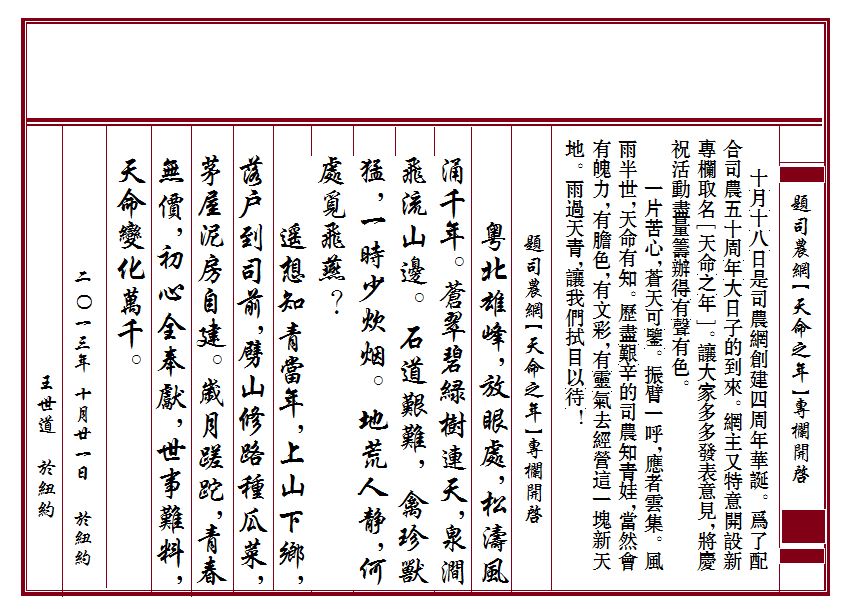 題司農網［天命之年］專欄開啓
十月十八日是司農網創建四周年華誕。爲了配
合司農五十周年大日子的到來。網主又特意開設新
專欄取名［天命之年］。讓大家多多發表意見，將慶
祝活動盡量籌辦得有聲有色。
一片苦心，蒼天可鑒。振臂一呼，應者雲集。風
雨半世，天命有知。歷盡艱辛的司農知青娃，當然會
有魄力，有膽色，有文彩，有靈氣去經營這一塊新天
地。雨過天青，讓我們拭目以待！
題司農網［天命之年］專欄開啓
粵北雄峰，放眼處，松濤風
涌千年。蒼翠碧綠樹連天，泉澗
飛流山邊。石道艱難，禽珍獸
猛，一時少炊烟。地荒人静，何
處覓飛燕？
遥想知青當年，上山下鄉，
落户到司前，劈山修路種瓜菜，
茅屋泥房自建。歲月蹉跎，青春
無價，初心全奉獻，世事難料，
天命變化萬千。
二〇一三年 十月廿一日 於紐約
王世道 於紐約